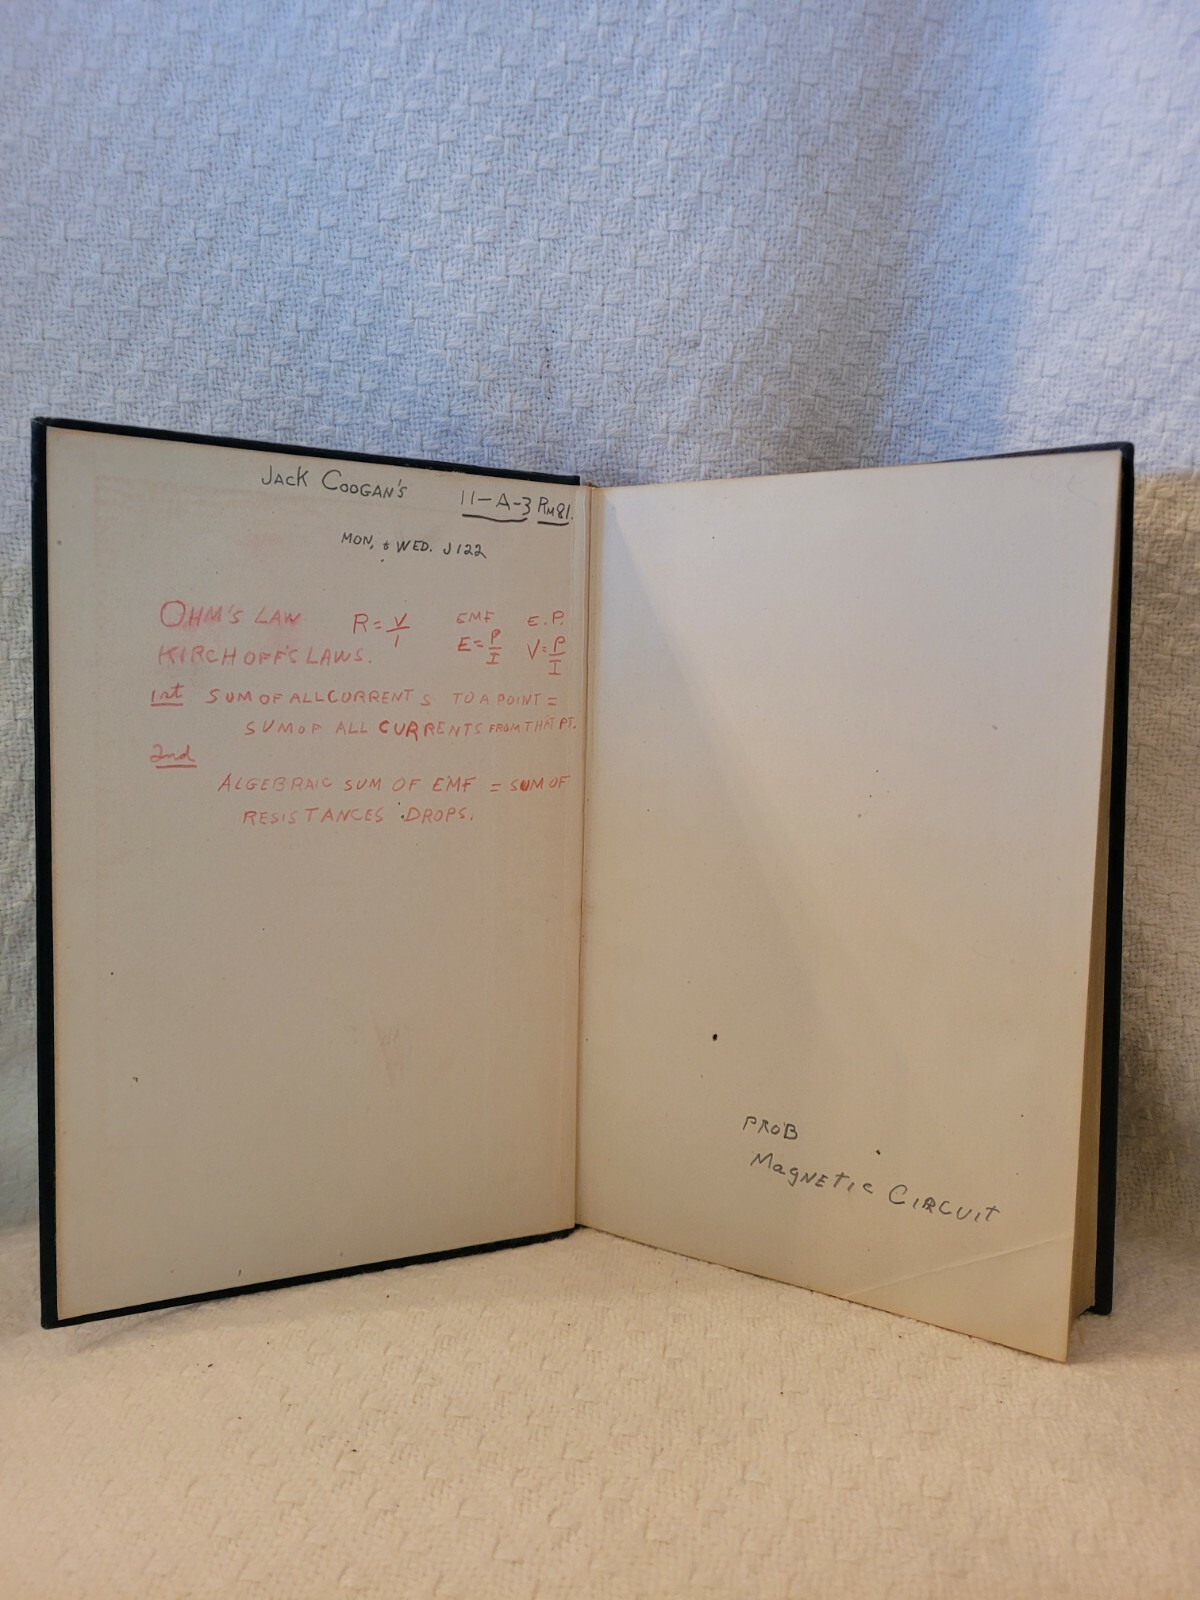 JACK COOGAN'S
11-A-3 RM 81.
MON. & WED. J122
OHM'S LAW R = V/I EMF E.P.
KIRCHOFF'S LAWS. E = P/I V = P/I
1st SUM OF ALL CURRENTS TO A POINT =
SUM OF ALL CURRENTS FROM THAT PT.
2nd
ALGEBRAIC SUM OF EMF = SUM OF
RESISTANCES DROPS.
PROB
MagNETIC CIRCUIT